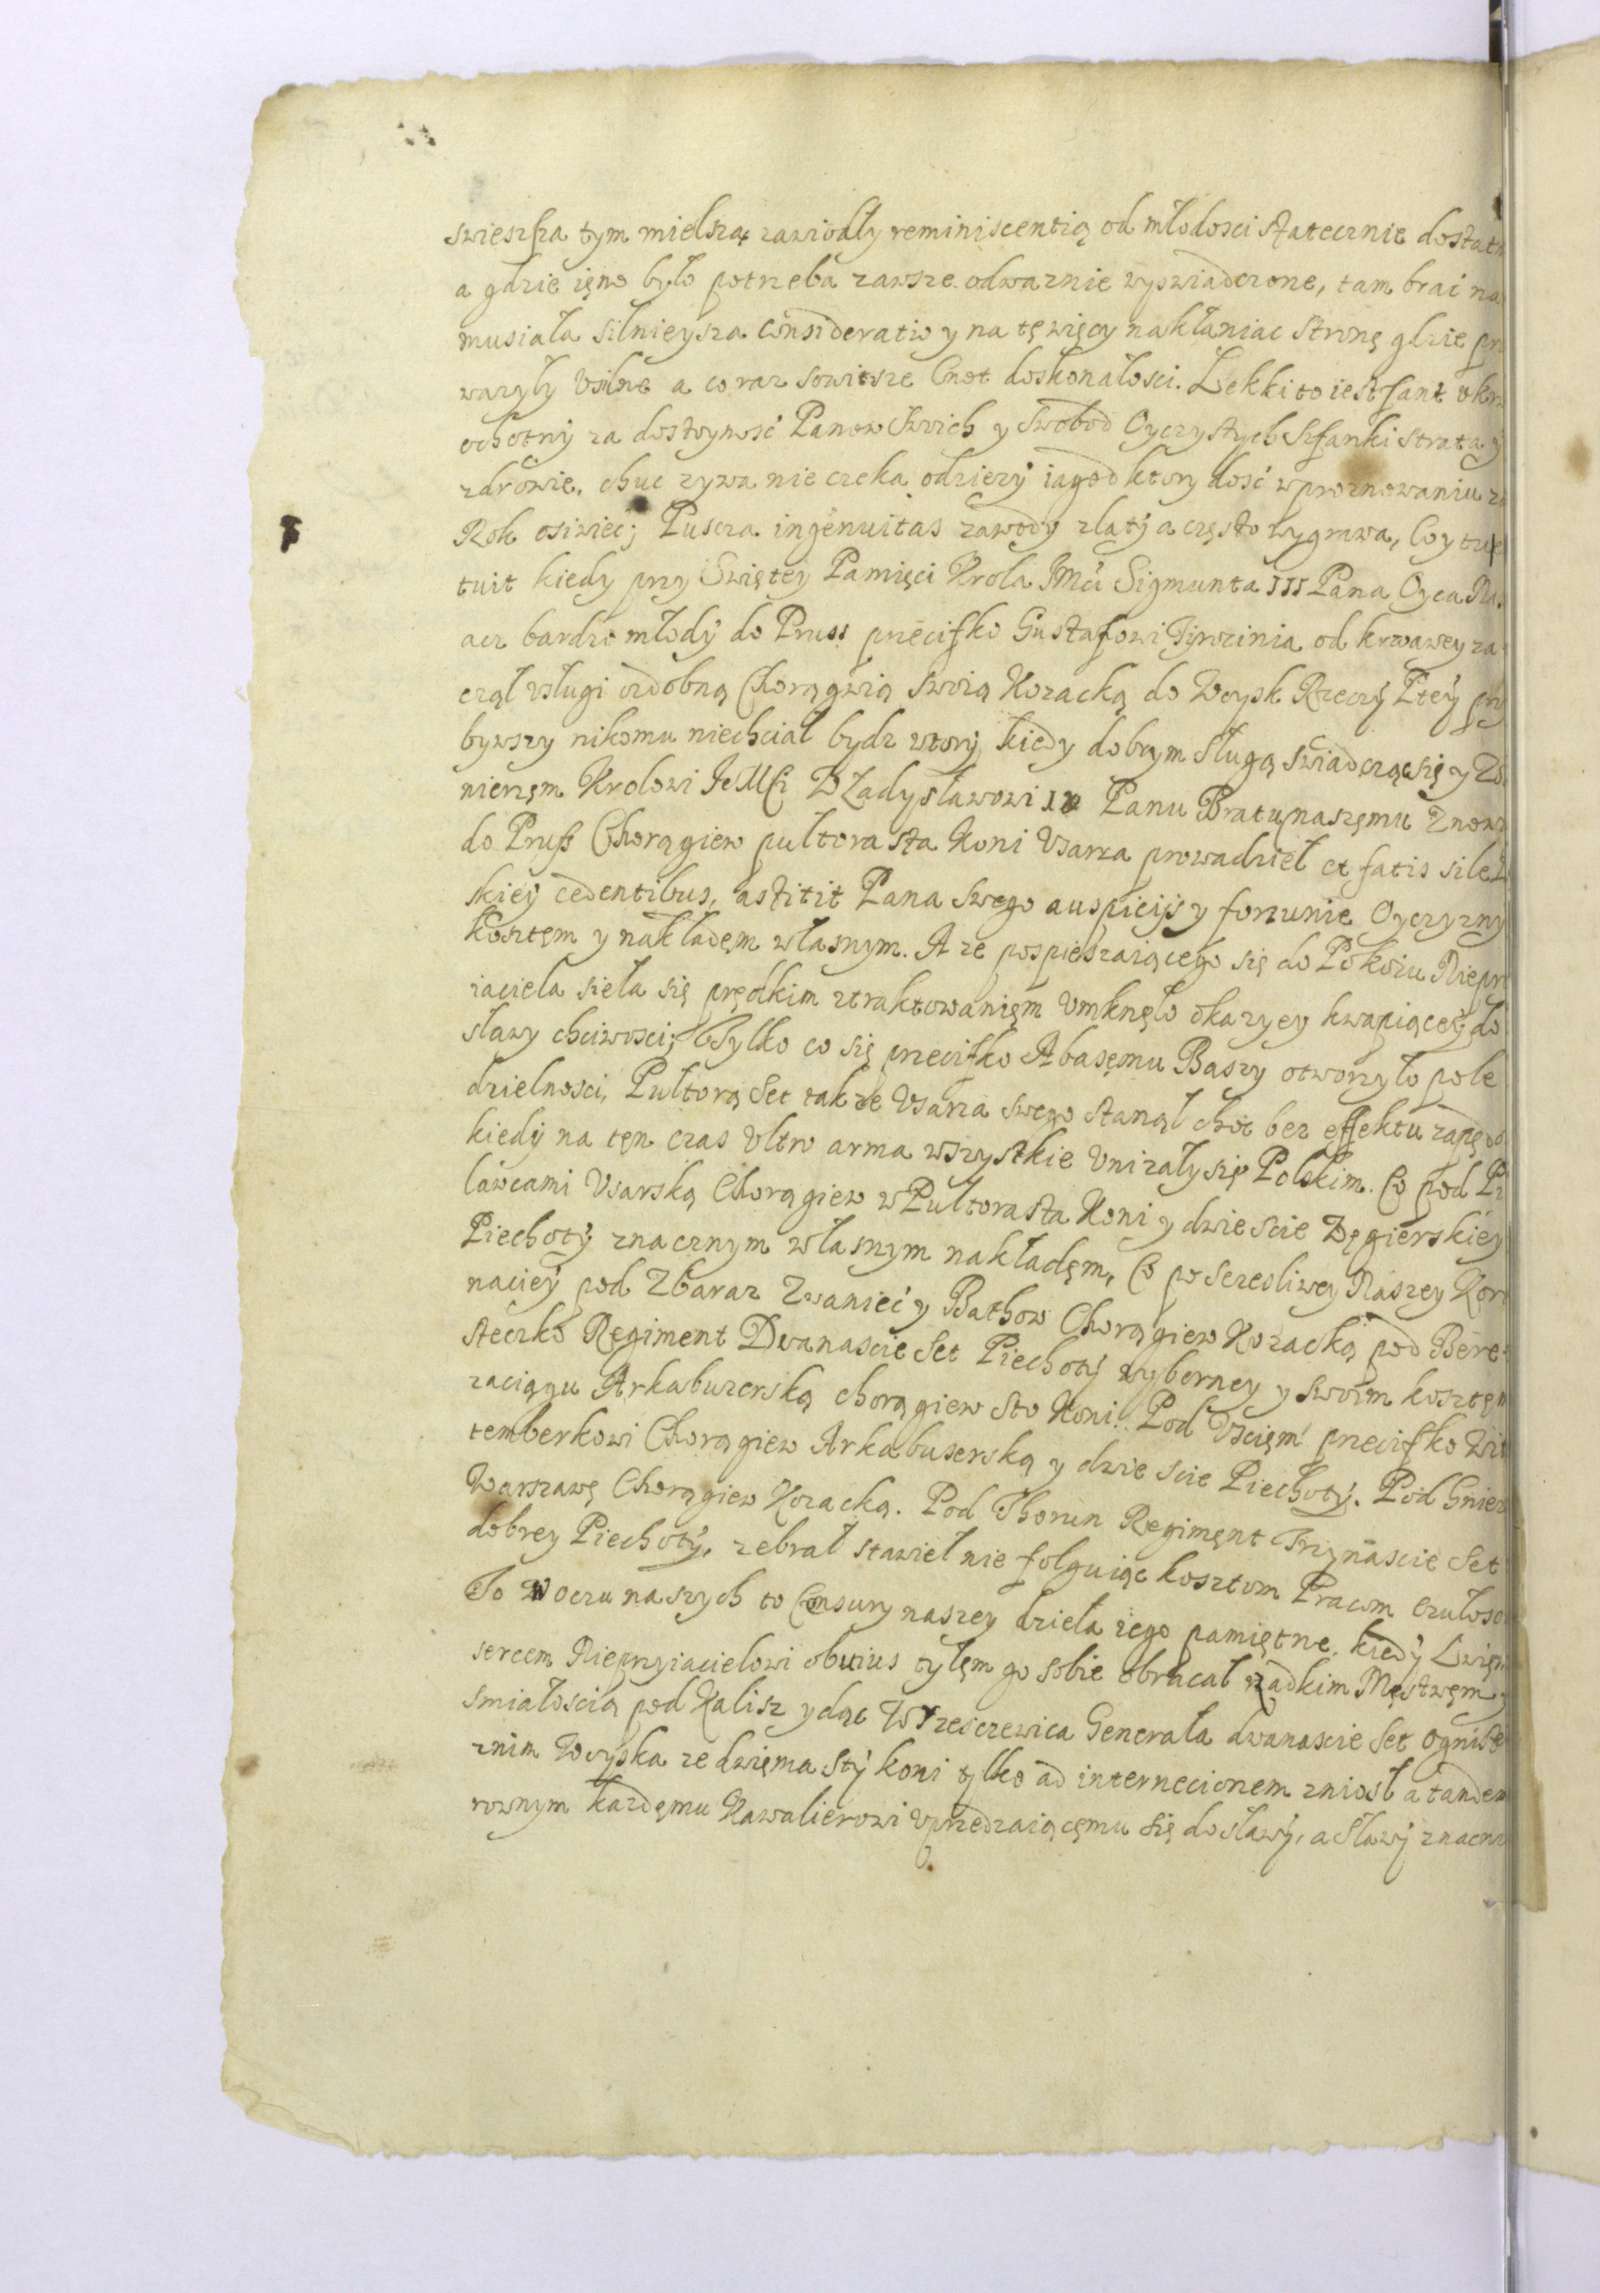 swieszsza tym mielszą zawiodły reminiscentią od młodosci statecznie dostat
a gdzie ięno było potrzeba zawsze odwaznie wyswiadczone, tam brać na
musiała silnieysza Consideratio y na tę więcy nakłaniac stronę gdzie prze
wazyły Usilne a coraz sowitsze Cnot doskonałosci. Lekki to iest fant
ochotny za dostoynosć Panow Swoich y Swobod Oyczystych Szfanki strata y
zdrowie, chuc zywa nie czeka odziezy iagod ktory dosć w proznowaniu
Rok osiwieć; Puscza ingenuitas zawody zlaty a często wygrawa, Coy
tuit kiedy przy Swiętey Pamięci Krola JMci Sigmunta III Pana Oyca
acz bardzo młody do Pruss przecifko Gustafowi Tyrocinia od krwawey za
cząl usługi ozdobną Chorągwią swoią Kozacką do Woysk Rzeczy Ptey prz
bywszy nikomu niechciał bydz wtory, kiedy dobrym sługą swiadcząc się y Zo
nierzęm Krolowi Je Mści Władysławowi IV Panu Bratu naszęmu Znow
do Pruss Chorągiew pultora sta Koni Usarza prowadzieł et fatis
skiey cedentibus, astitit Pana swego auspicijs y forzunie Oyczyzny
kosztęm y nakładęm własnym. A ze pospieszaiącego się do Pokoiu Niepr
iaciela sieła się prędkim ztraktowanięm Umknęło okazyey kwapiącey do
sławy chciwosci; Tylko co się przecifko Abasęmu Baszy otworzyło pole
dzielnosci, Pultorą Set takze Usarza swego stanął choc bez effektu
kiedy na tęn czas Ultro arma wszystkie Unizały się Polskim. Co pod
ławcami Usarską Chorągiew w Pultora sta Koni y dwie scie Węgierskiey
Piechoty znacznym własnym nakładęm, Co po Szczesliwey Naszey Kor
naciey pod Zbaraz Zwaniec y Bathow Chorągiew Kozacką pod Bere
steczko Regiment Dwanascie Set Piechoty wyborney y swoim kosztęm
zaciągu Arkabuzerską chorągiew Sto Koni. Pod Usciem przecifko Wi
temberkowi Chorągiew Arkabuserską y dwie scie Piechoty. Pod Gniez
Warszawę Chorągiew Kozacką. Pod Thorun Regimęnt Trzynascie Set
dobrey Piechoty, zebrał stawieł nie folguiąc kosztom Pracom czułos
To w oczu naszych to Censury naszey dzieła iego pamiętne, kiedy Lwię
sercem Nieprzyiacielowi obuius tyłęm go sobie obracał rzadkim Męstwęm
smiałoscią pod Kalisz ydąc Wrzesczewica Generała dwanascie Set ognist
znim Woyska ze dwięma sty koni tylko ad internecionem zniosł a tandem
rownym kazdęmu Kawalierowi Uprzedzaiącęmu się do sławy, a sławy znaczn